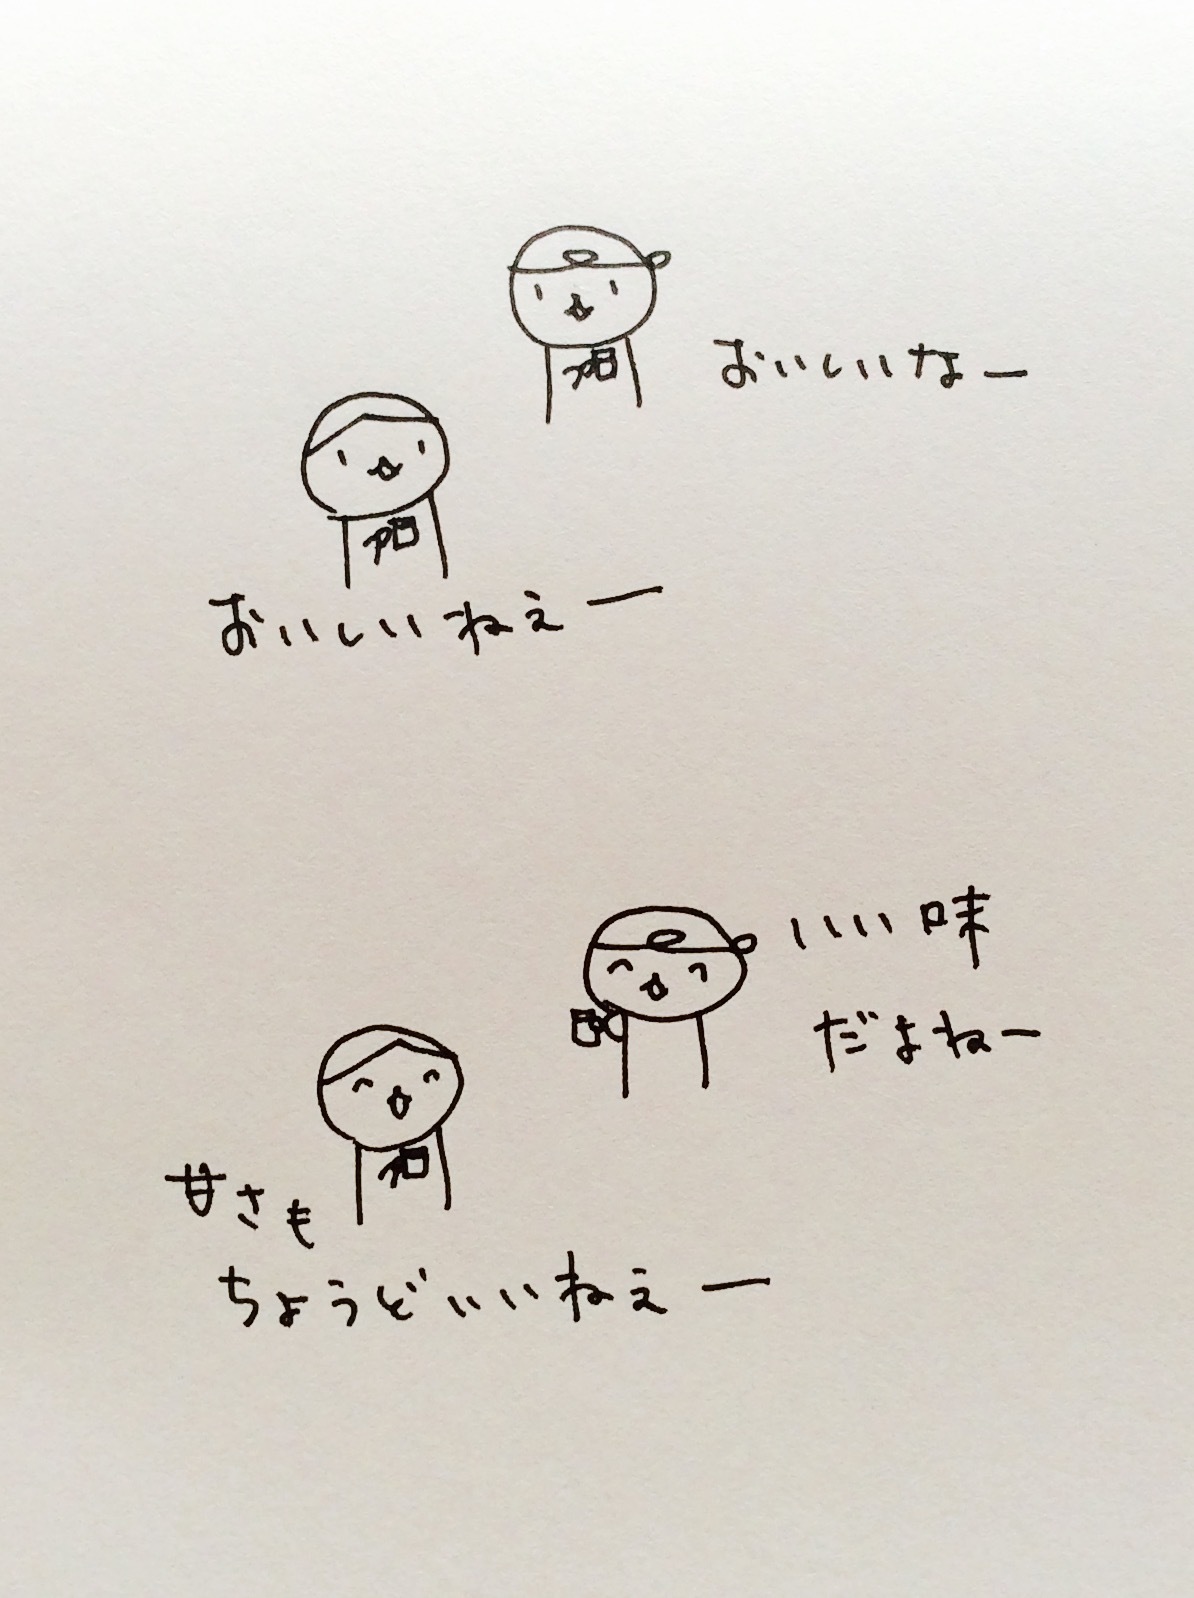 おいしいなー
おいしいねぇー
いい味
だよねー
甘さも
ちょうどいいねぇー